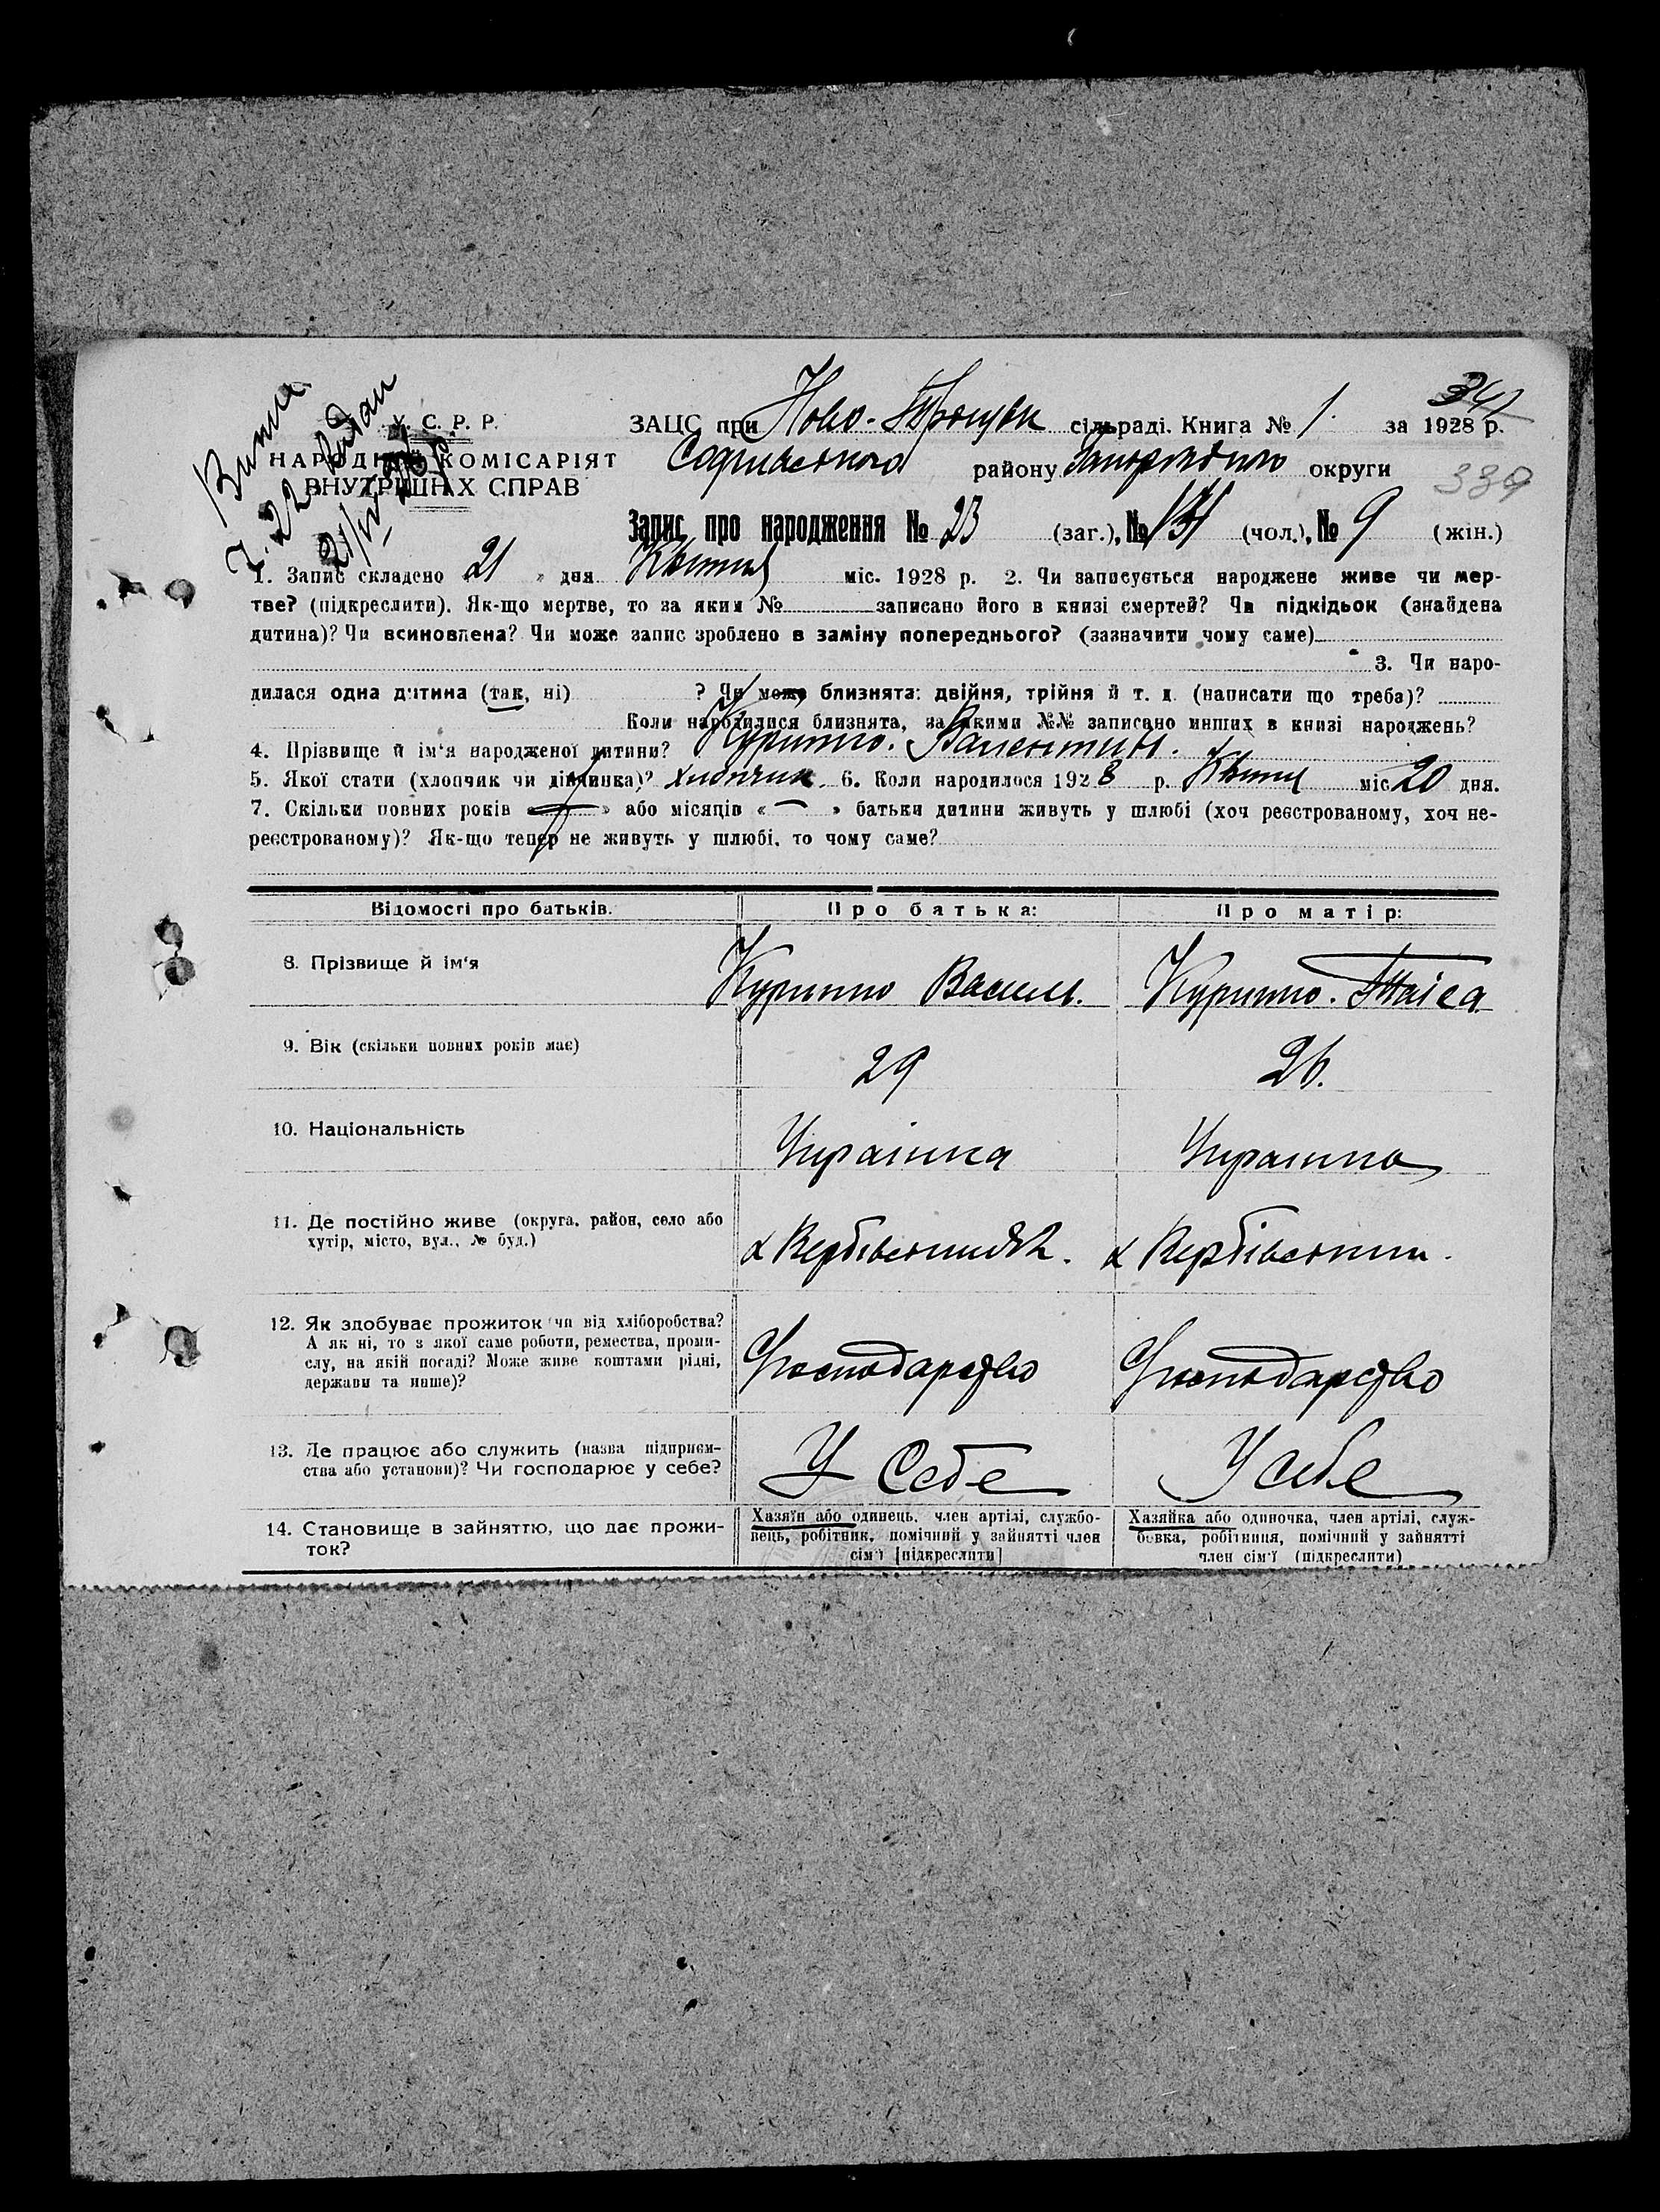 341
У. С. Р. Р.
НАРОДНІЙ КОМІСАРІЯТ
ВНУТРІШНІХ СПРАВ
Витяг
21/IV 28 р.
ЗАЦС при Ново- сільраді. Книга № 1. за 1928 р.
району округи
339
Запис про народження № 23 (заг.), № (чол.), № 9 (жін.)
1. Запис складено 21 „ дня Квітня міс. 1928 р. 2. Чи записується народжене живе чи мер-
тве? (підкреслити). Як-що мертве, то за яким № записано його в книзі смертей? Чи підкідьок (знайдена
дитина)? Чи всиновлена? Чи може запис зроблено в заміну попереднього? (зазначити чому саме)
3. Чи наро-
дилася одна дитина (так, ні) ? Чи може близнята: двійня, трійня й т. д. (написати що треба)?
Коли народилися близнята, за якими №№ записано инших в книзі народжень?
4. Прізвище й ім'я народженої дитини? Курипко. Валентин.
5. Якої стати (хлопчик чи дівчинка)? хлопчик. 6. Коли народилося 1928 р. Квітня міс 20 дня.
7. Скільки повних років « — » або місяців « — » батьки дитини живуть у шлюбі (хоч реєстрованому, хоч не-
реєстрованому)? Як-що тепер не живуть у шлюбі, то чому саме?
Відомості про батьків.
Про батька:
Про матір:
8. Прізвище й ім'я
Курипко Василь.
Курипко. Таіса
9. Вік (скільки повних років має)
29
26.
10. Національність
Украінка
Украінка
11. Де постійно живе (округа, район, село або
хутір, місто, вул., № буд.)
х Вербівський.
12. Як здобуває прожиток чи від хліборобства?
А як ні, то з якої саме роботи, ремества, проми-
слу, на якій посаді? Може живе коштами рідні,
держави та инше)?
Господарство
Господарство
13. Де працює або служить (назва підприєм-
ства або установи)? Чи господарює у себе?
У Себе
У себе
14. Становище в зайняттю, що дає прожи-
ток?
Хазяїн або одинець, член артілі, службо-
вець, робітник, помічний у зайнятті член
сім'ї [підкреслити]
Хазяйка або одиночка, член артілі, служ-
бовка, робітниця, помічний у зайнятті
член сім'ї (підкреслити)